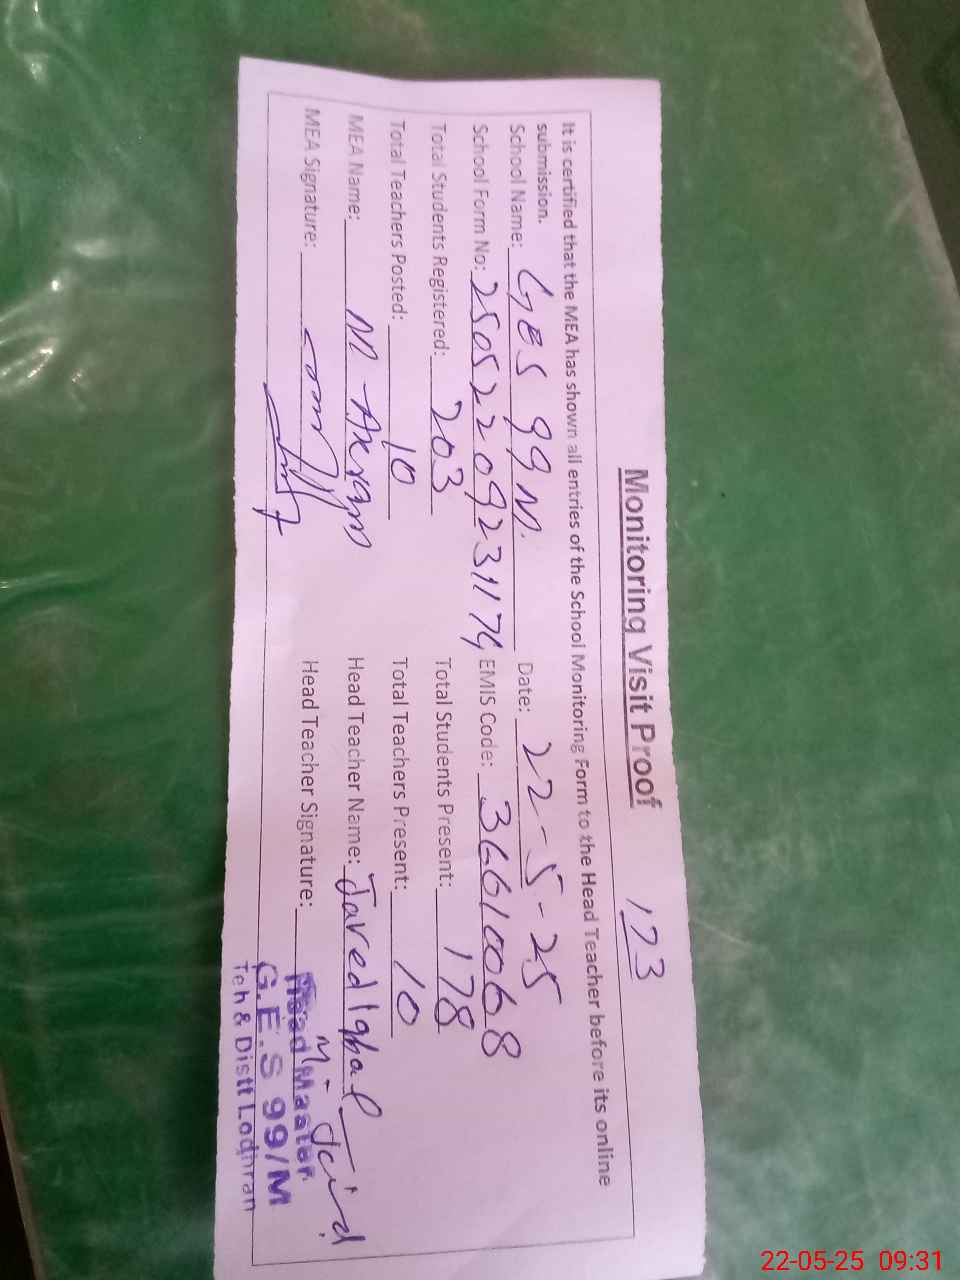 Monitoring Visit Proof 173
It is certified that the MEA has shown all entries of the School Monitoring Form to the Head Teacher before its online
submission.
School Name: GES 99 M. Date: 22-5-25
School Form No: 2505220923117 EMIS Code: 36610068
Total Students Registered: 203 Total Students Present: 178
Total Teachers Posted: 10 Total Teachers Present: 10
MEA Name: M Akram Head Teacher Name: Javed Iqbal
MEA Signature: Head Teacher Signature:
Head Master
G.E.S 99/M
Teh & Distt Lodhran
22-05-25 09:31